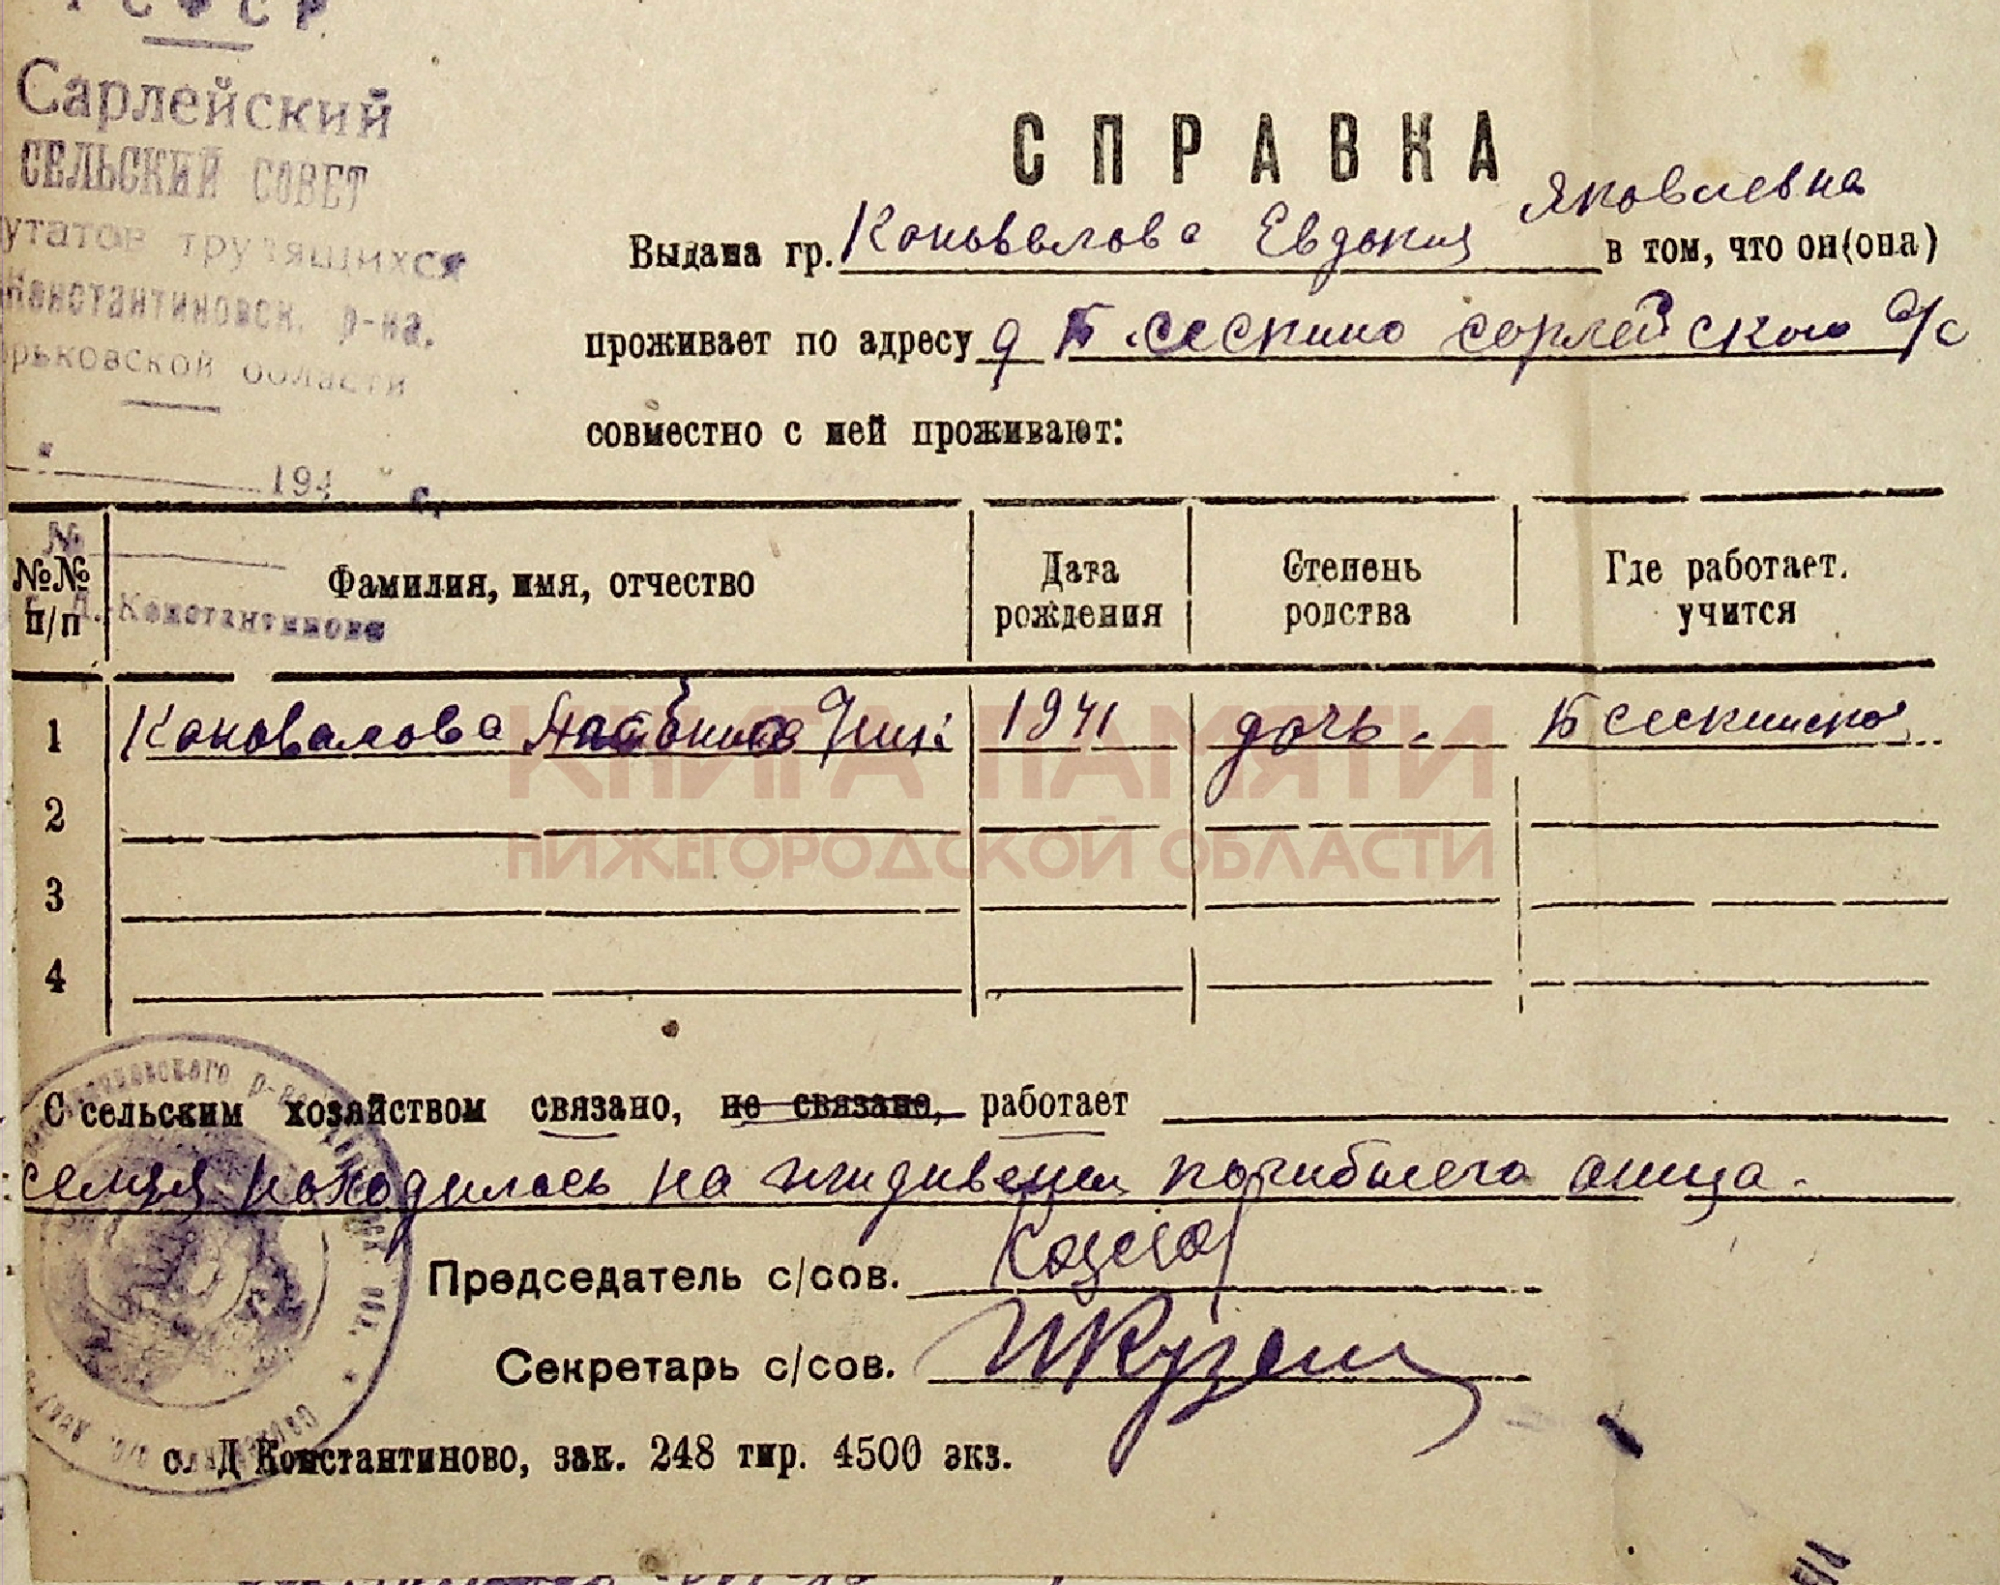 РСФСР
Сарлейский
СЕЛЬСКИЙ СОВЕТ
утатов трудящихся
Константиновск. р-на.
орьковской области
" 194 г.
№
с. Д.-Константиново
СПРАВКА
Выдана гр. Коновалова Евдокия Яковлевна в том, что он(она)
проживает по адресу д Б.сескино сарлейского с/с
совместно с ней проживают:
№№ п/п Фамилия, имя, отчество Дата рождения Степень родства Где работает. учится
1 Коновалова Ник. 1941 дочь.
2
3
4
КНИГА ПАМЯТИ
НИЖЕГОРОДСКОЙ ОБЛАСТИ
С сельским хозяйством связано, не связано, работает
семья находилась на погибшего
Председатель с/сов.
Секретарь с/сов.
с. Д Константиново, зак. 248 тир. 4500 экз.